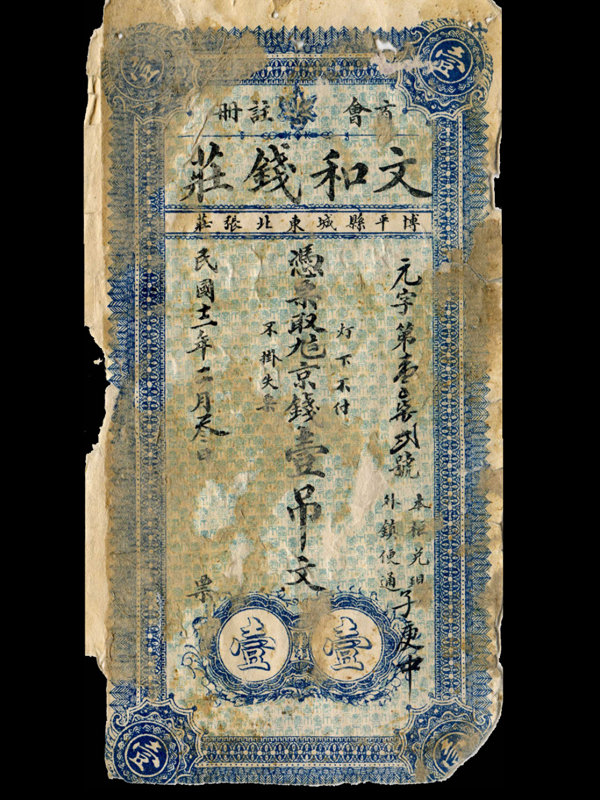 壹
壹
商會註冊
文和錢莊
博平縣城東北張莊
元字第壹百柒貳號
本柜兌現
外鎮便通
灯下不付
憑票取九京錢壹吊文
不掛失票
民國十一年二月叁日
票
壹
壹
壹
壹